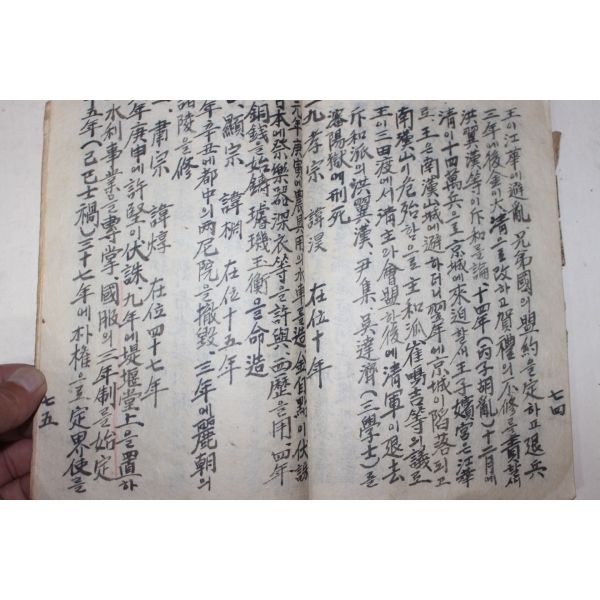 王이江華에避亂 兄弟國의盟約을定하고退兵
三年에後金이大淸으로改하고賀禮의不修를責할새
洪翼漢等이斥和를論、十四年(丙子胡亂)十二月에
淸이十四萬兵으로京城에來迫할새王子嬪宮은江華
로、王은南漢山城에避하더니翌年에京城이陷落되고
南漢山이危殆함으로主和派崔鳴吉等의議로
王이三田渡에서淸主와會盟한後에淸軍이退去
斥和派의洪翼漢 尹集 吳達濟(三學士)를
瀋陽獄에刑死
一九 孝宗 諱淏 在位十年
元年庚寅에 用의水車를造 金自點이伏誅
日本에祭樂器深衣等을許與、西曆을用、四年
銅錢을始鑄 璿璣玉衡을命造
顯宗 諱棩 在位十五年
年辛丑에都中의兩尼院을撤毁、三年에麗朝의
諸陵을修
肅宗 諱焞 在位四十七年
年庚申에許堅이伏誅九年에堤堰堂上을置하
水利事業을專掌、國服의三年制를始定
十五年(己巳士禍)三十七年에朴權으로定界使를
七四
七五